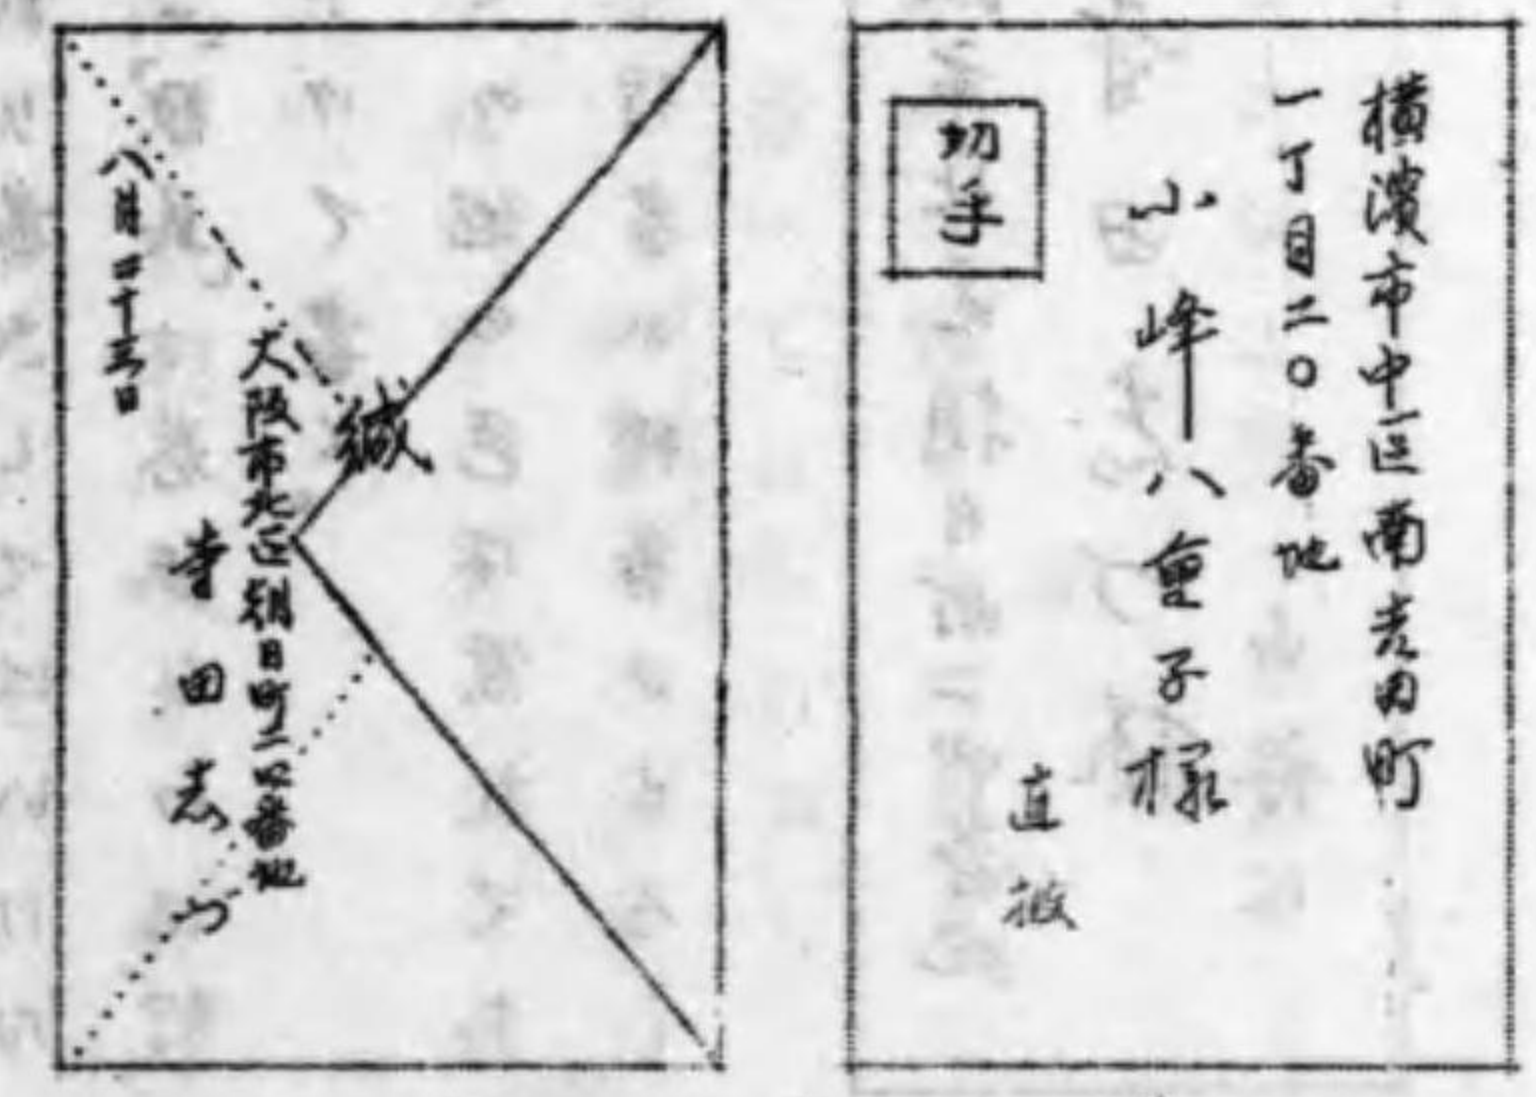 横濱市中区南吉田町
一丁目二〇番地
小峰八重子様
直披
切手
緘
大阪市北区朝日町二四番地
寺田志づ
八月二十三日